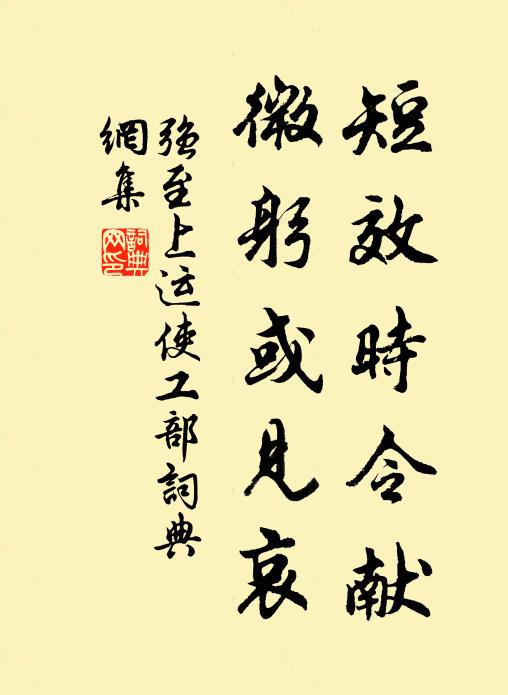 短效時令献
微躬或見哀
强至上运使工部詞典
網集
詞典
网印